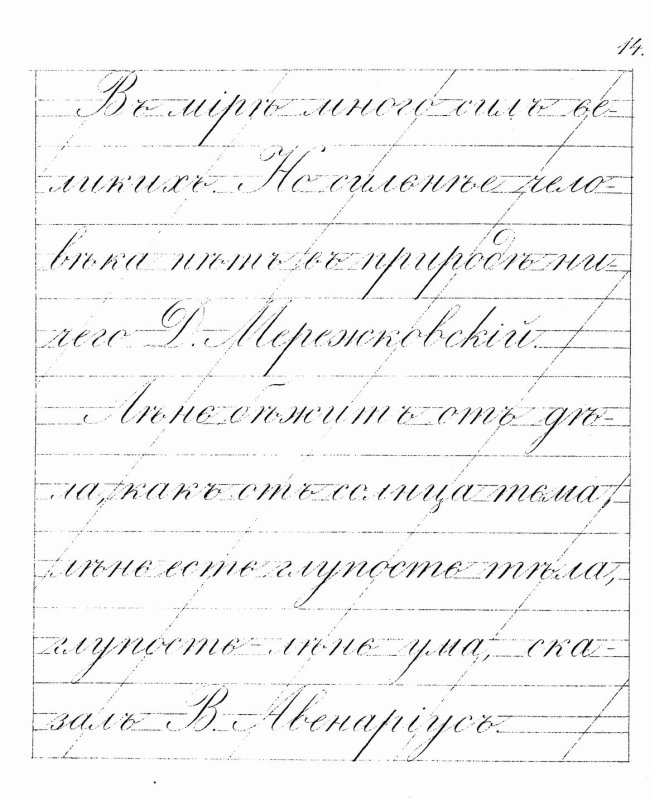 14.
Въ мірѣ много силъ ве-
ликихъ. Но сильнѣе чело-
вѣка нѣтъ въ природѣ ни-
чего Д. Мережковскій.
Лѣнь бѣжитъ отъ дѣ-
ла, какъ отъ солнца тьма,
лѣнь есть глупость тѣла,
глупость - лѣнь ума, ска-
залъ В. Авенаріусъ.